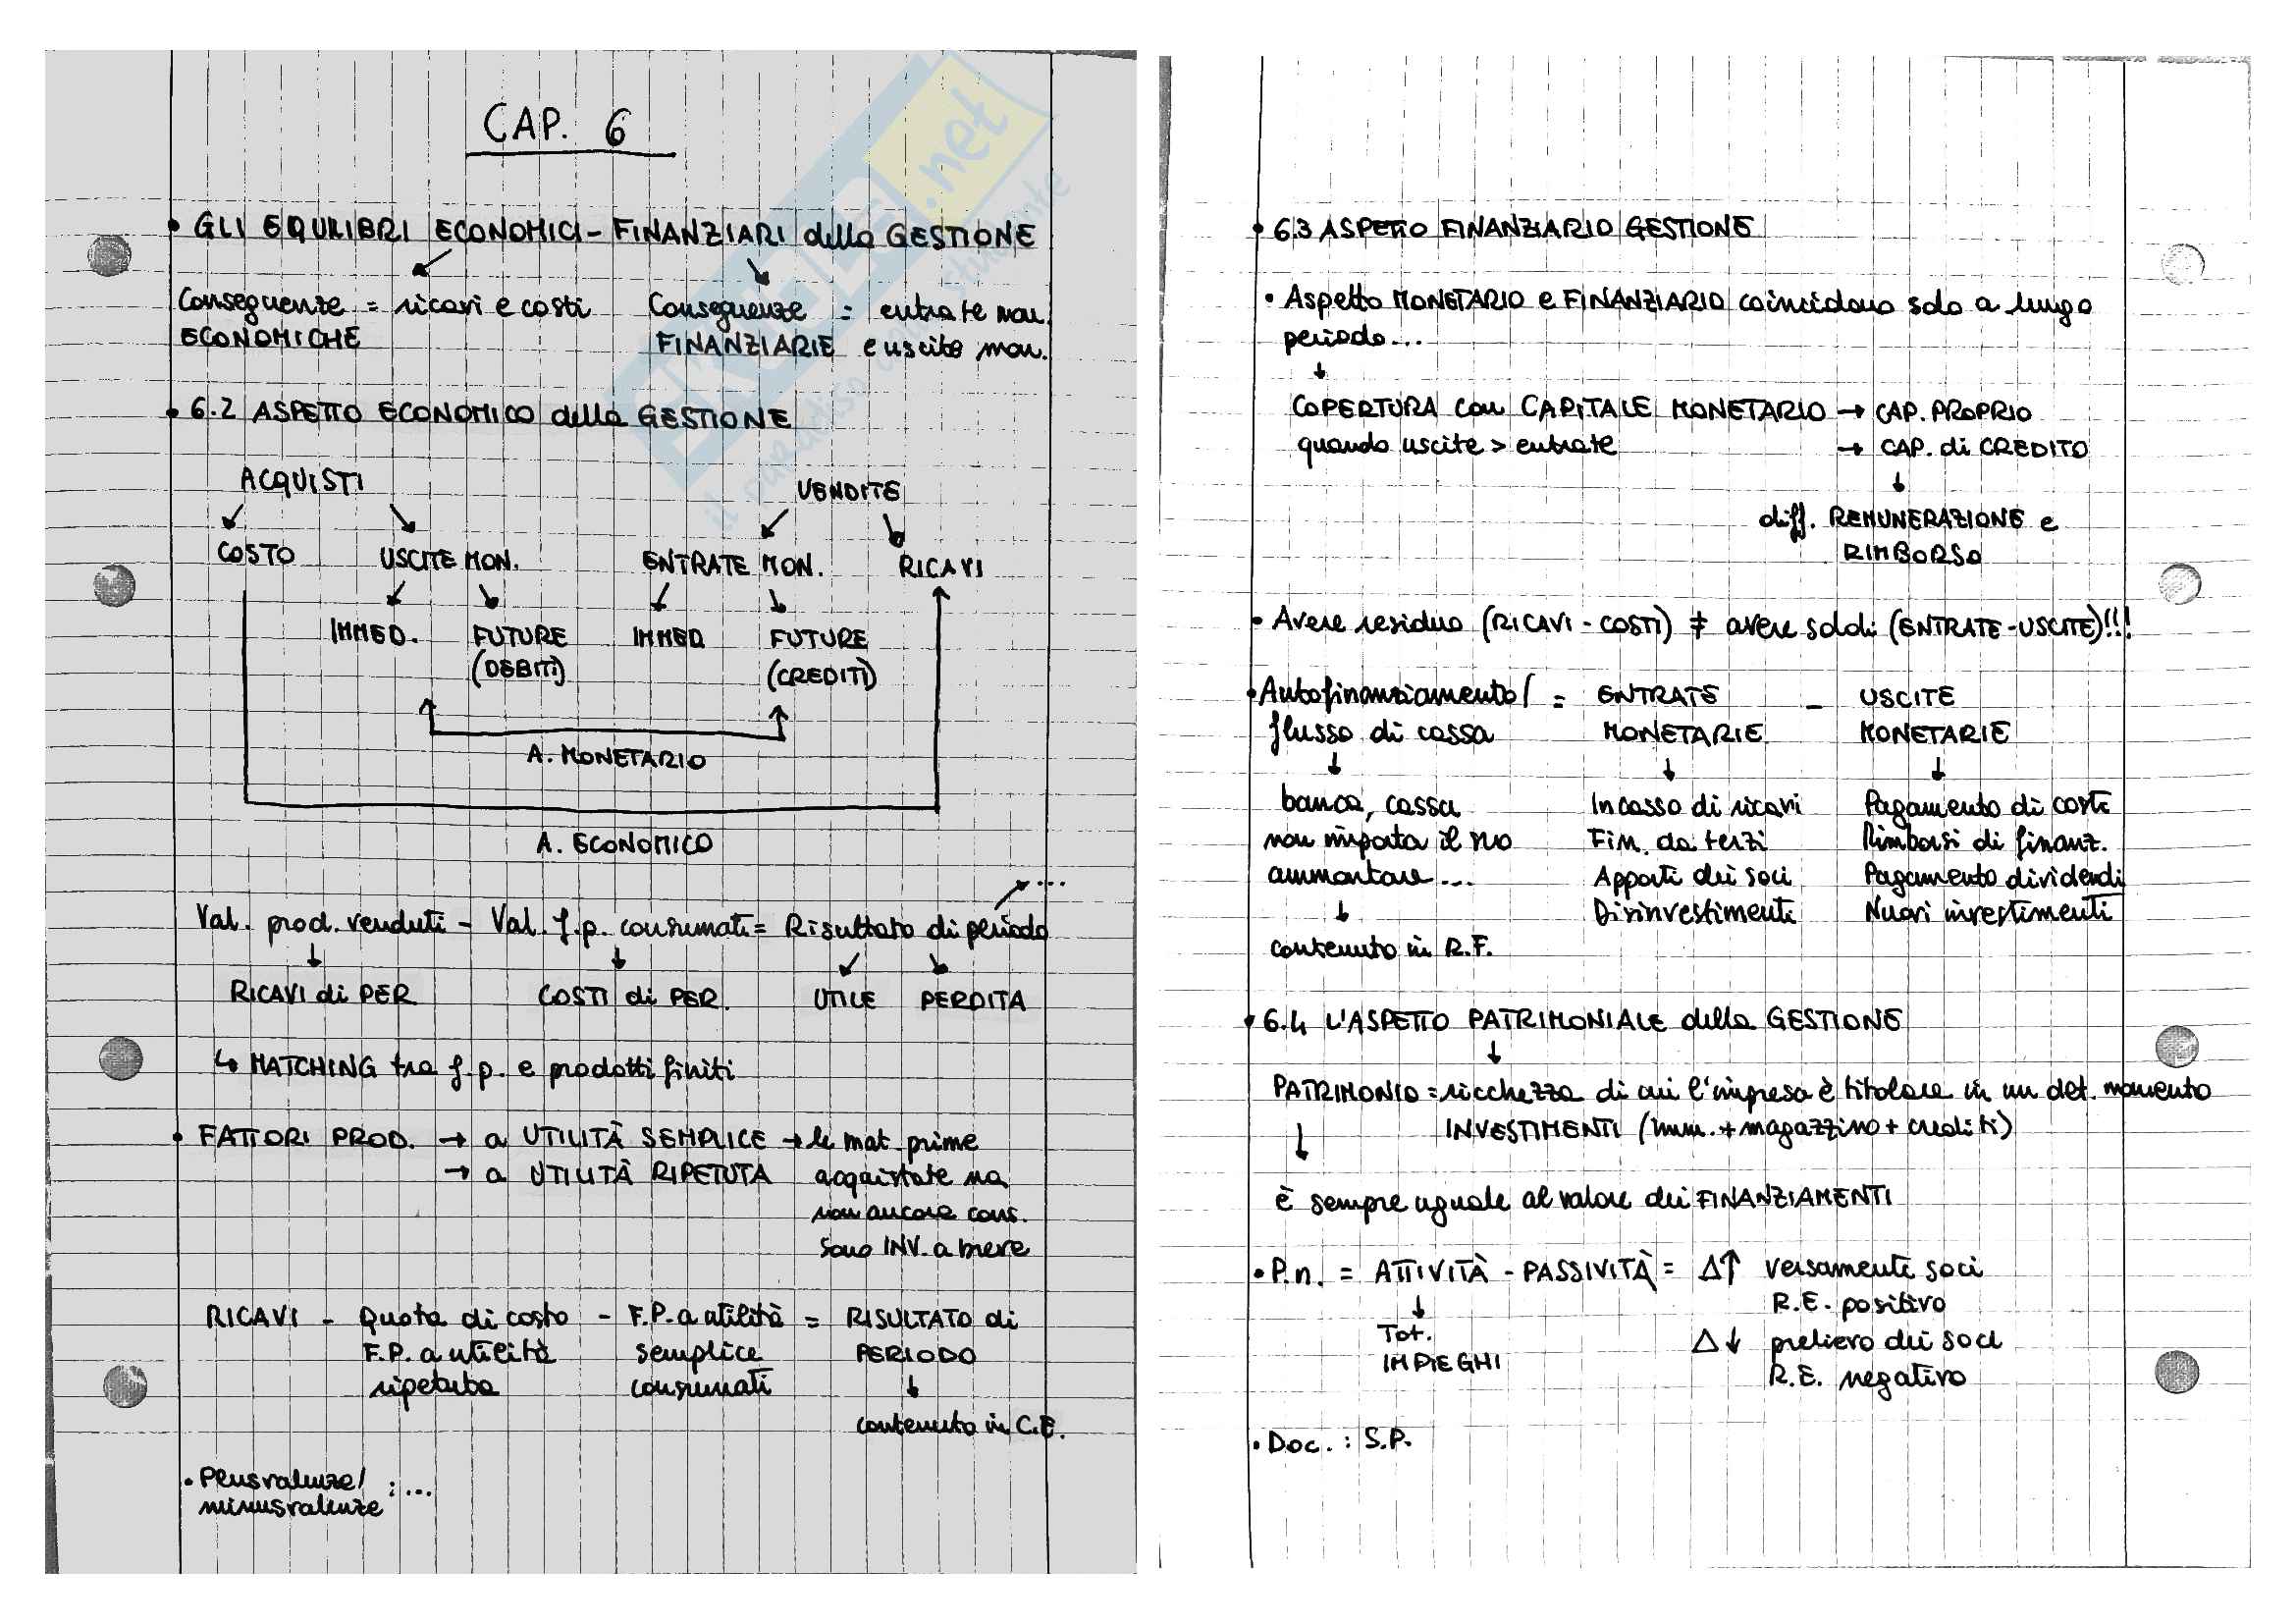 CAP. 6
• GLI EQUILIBRI ECONOMICI - FINANZIARI della GESTIONE
Conseguenze = ricavi e costi
ECONOMICHE
Conseguenze = entrate mon.
FINANZIARIE e uscite mon.
• 6.2 ASPETTO ECONOMICO della GESTIONE
ACQUISTI
VENDITE
COSTO USCITE MON. ENTRATE MON. RICAVI
IMMED. FUTURE IMMED FUTURE
(DEBITI) (CREDITI)
A. MONETARIO
A. ECONOMICO
...
Val. prod. venduti - Val. f.p. consumati = Risultato di periodo
RICAVI di PER. COSTI di PER. UTILE PERDITA
↳ MATCHING tra f.p. e prodotti finiti
• FATTORI PROD. → a UTILITÀ SEMPLICE → le mat. prime
→ a UTILITÀ RIPETUTA acquistate ma
non ancora cons.
sono INV. a breve
RICAVI - Quota di costo - F.P. a utilità = RISULTATO di
F.P. a utilità semplice PERIODO
ripetuta consumati
contenuto in C.E.
• Plusvalenze/
minusvalenze : ...
• 6.3 ASPETTO FINANZIARIO GESTIONE
• Aspetto MONETARIO e FINANZIARIO coincidono solo a lungo
periodo...
COPERTURA con CAPITALE MONETARIO → CAP. PROPRIO
quando uscite > entrate → CAP. di CREDITO
diff. REMUNERAZIONE e
RIMBORSO
• Avere residuo (RICAVI - COSTI) ≠ avere soldi (ENTRATE - USCITE)!!!
• Autofinanziamento/ = ENTRATE - USCITE
flusso di cassa MONETARIE MONETARIE
banca, cassa Incasso di ricavi Pagamento di costi
non importa il suo Fin. da terzi Rimborsi di finanz.
ammontare... Apporti dei soci Pagamento dividendi
Disinvestimenti Nuovi investimenti
contenuto in R.F.
• 6.4 L'ASPETTO PATRIMONIALE della GESTIONE
PATRIMONIO = ricchezza di cui l'impresa è titolare in un det. momento
INVESTIMENTI (imm. + magazzino + crediti)
è sempre uguale al valore dei FINANZIAMENTI
• P.n. = ATTIVITÀ - PASSIVITÀ = Δ↑ versamenti soci
R.E. positivo
Tot. Δ↓ prelievo dei soci
IMPIEGHI R.E. negativo
• Doc. : S.P.